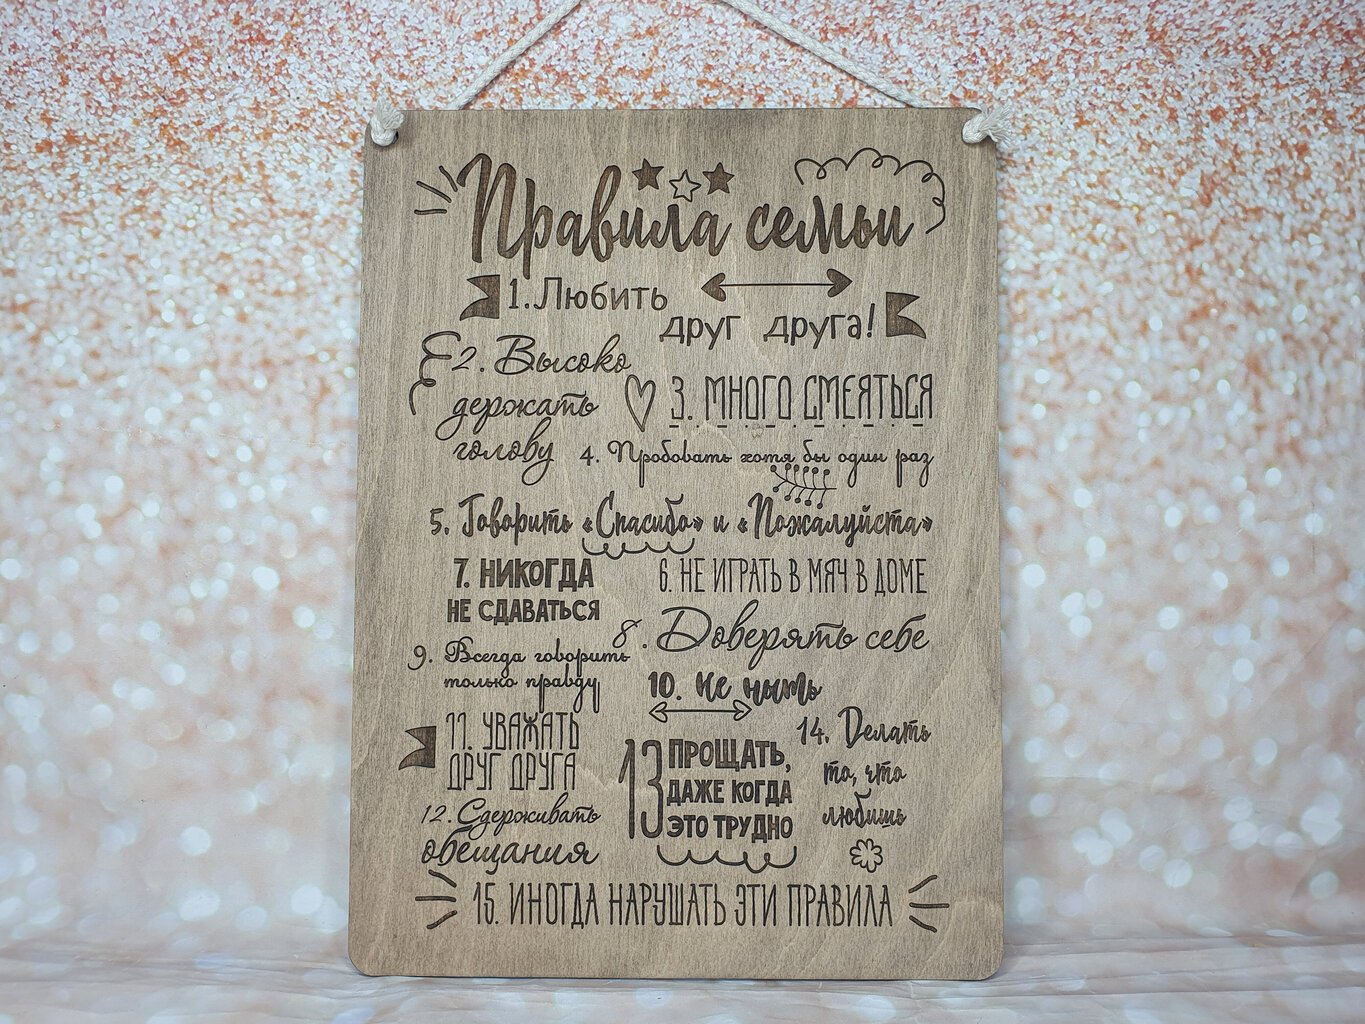 Правила семьи
1. Любить
друг друга!
2. Высоко
держать
голову
3. МНОГО СМЕЯТЬСЯ
4. Пробовать хотя бы один раз
5. Говорить «Спасибо» и «Пожалуйста»
7. НИКОГДА
НЕ СДАВАТЬСЯ
6. НЕ ИГРАТЬ В МЯЧ В ДОМЕ
8. Доверять себе
9. Всегда говорить
только правду
10. Не ныть
11. УВАЖАТЬ
ДРУГ ДРУГА
12. Сдерживать
обещания
13 ПРОЩАТЬ,
ДАЖЕ КОГДА
ЭТО ТРУДНО
14. Делать
то, что
любишь
15. ИНОГДА НАРУШАТЬ ЭТИ ПРАВИЛА